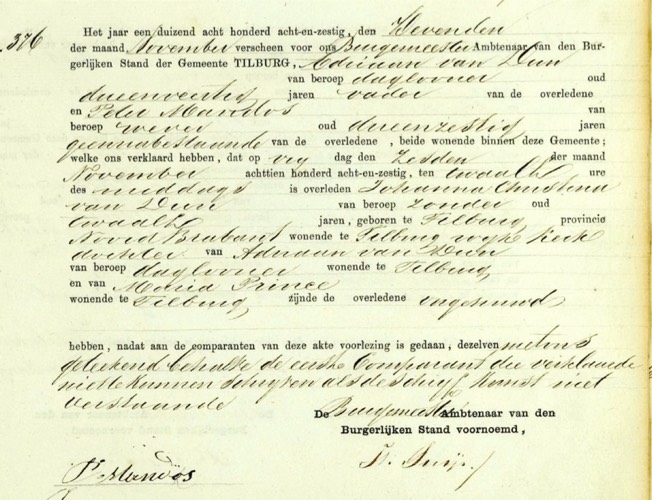 376
Het jaar een duizend acht honderd acht-en-zestig, den Zevenden
der maand November verscheen voor ons Burgemeester Ambtenaar van den Bur-
gerlijken Stand der Gemeente TILBURG, Adriaan van Dun
van beroep daglooner oud
drieenveertig jaren vader van de overledene
en Peter Mandos van
beroep wever oud drieenzestig jaren
geennabestaande van de overledene, beide wonende binnen deze Gemeente;
welke ons verklaard hebben, dat op vrij dag den Zesden der maand
November achttien honderd acht-en-zestig, ten twaalf ure
des middags is overleden Johanna Christina
van Dun van beroep zonder oud
twaalf jaren, geboren te Tilburg, provincie
Noord Brabant wonende te Tilburg wyk Kerk
dochter van Adriaan van Dun
van beroep daglooner wonende te Tilburg,
en van Maria Prince
wonende te Tilburg, zijnde de overledene ongehuwd
hebben, nadat aan de comparanten van deze akte voorlezing is gedaan, dezelven met ons
geteekend behalve de eerste Comparant die verklaarde
niet te kunnen schryven als de schryfkunst niet
verstaande
De Burgemeester Ambtenaar van den
Burgerlijken Stand voornoemd,
P Mandos